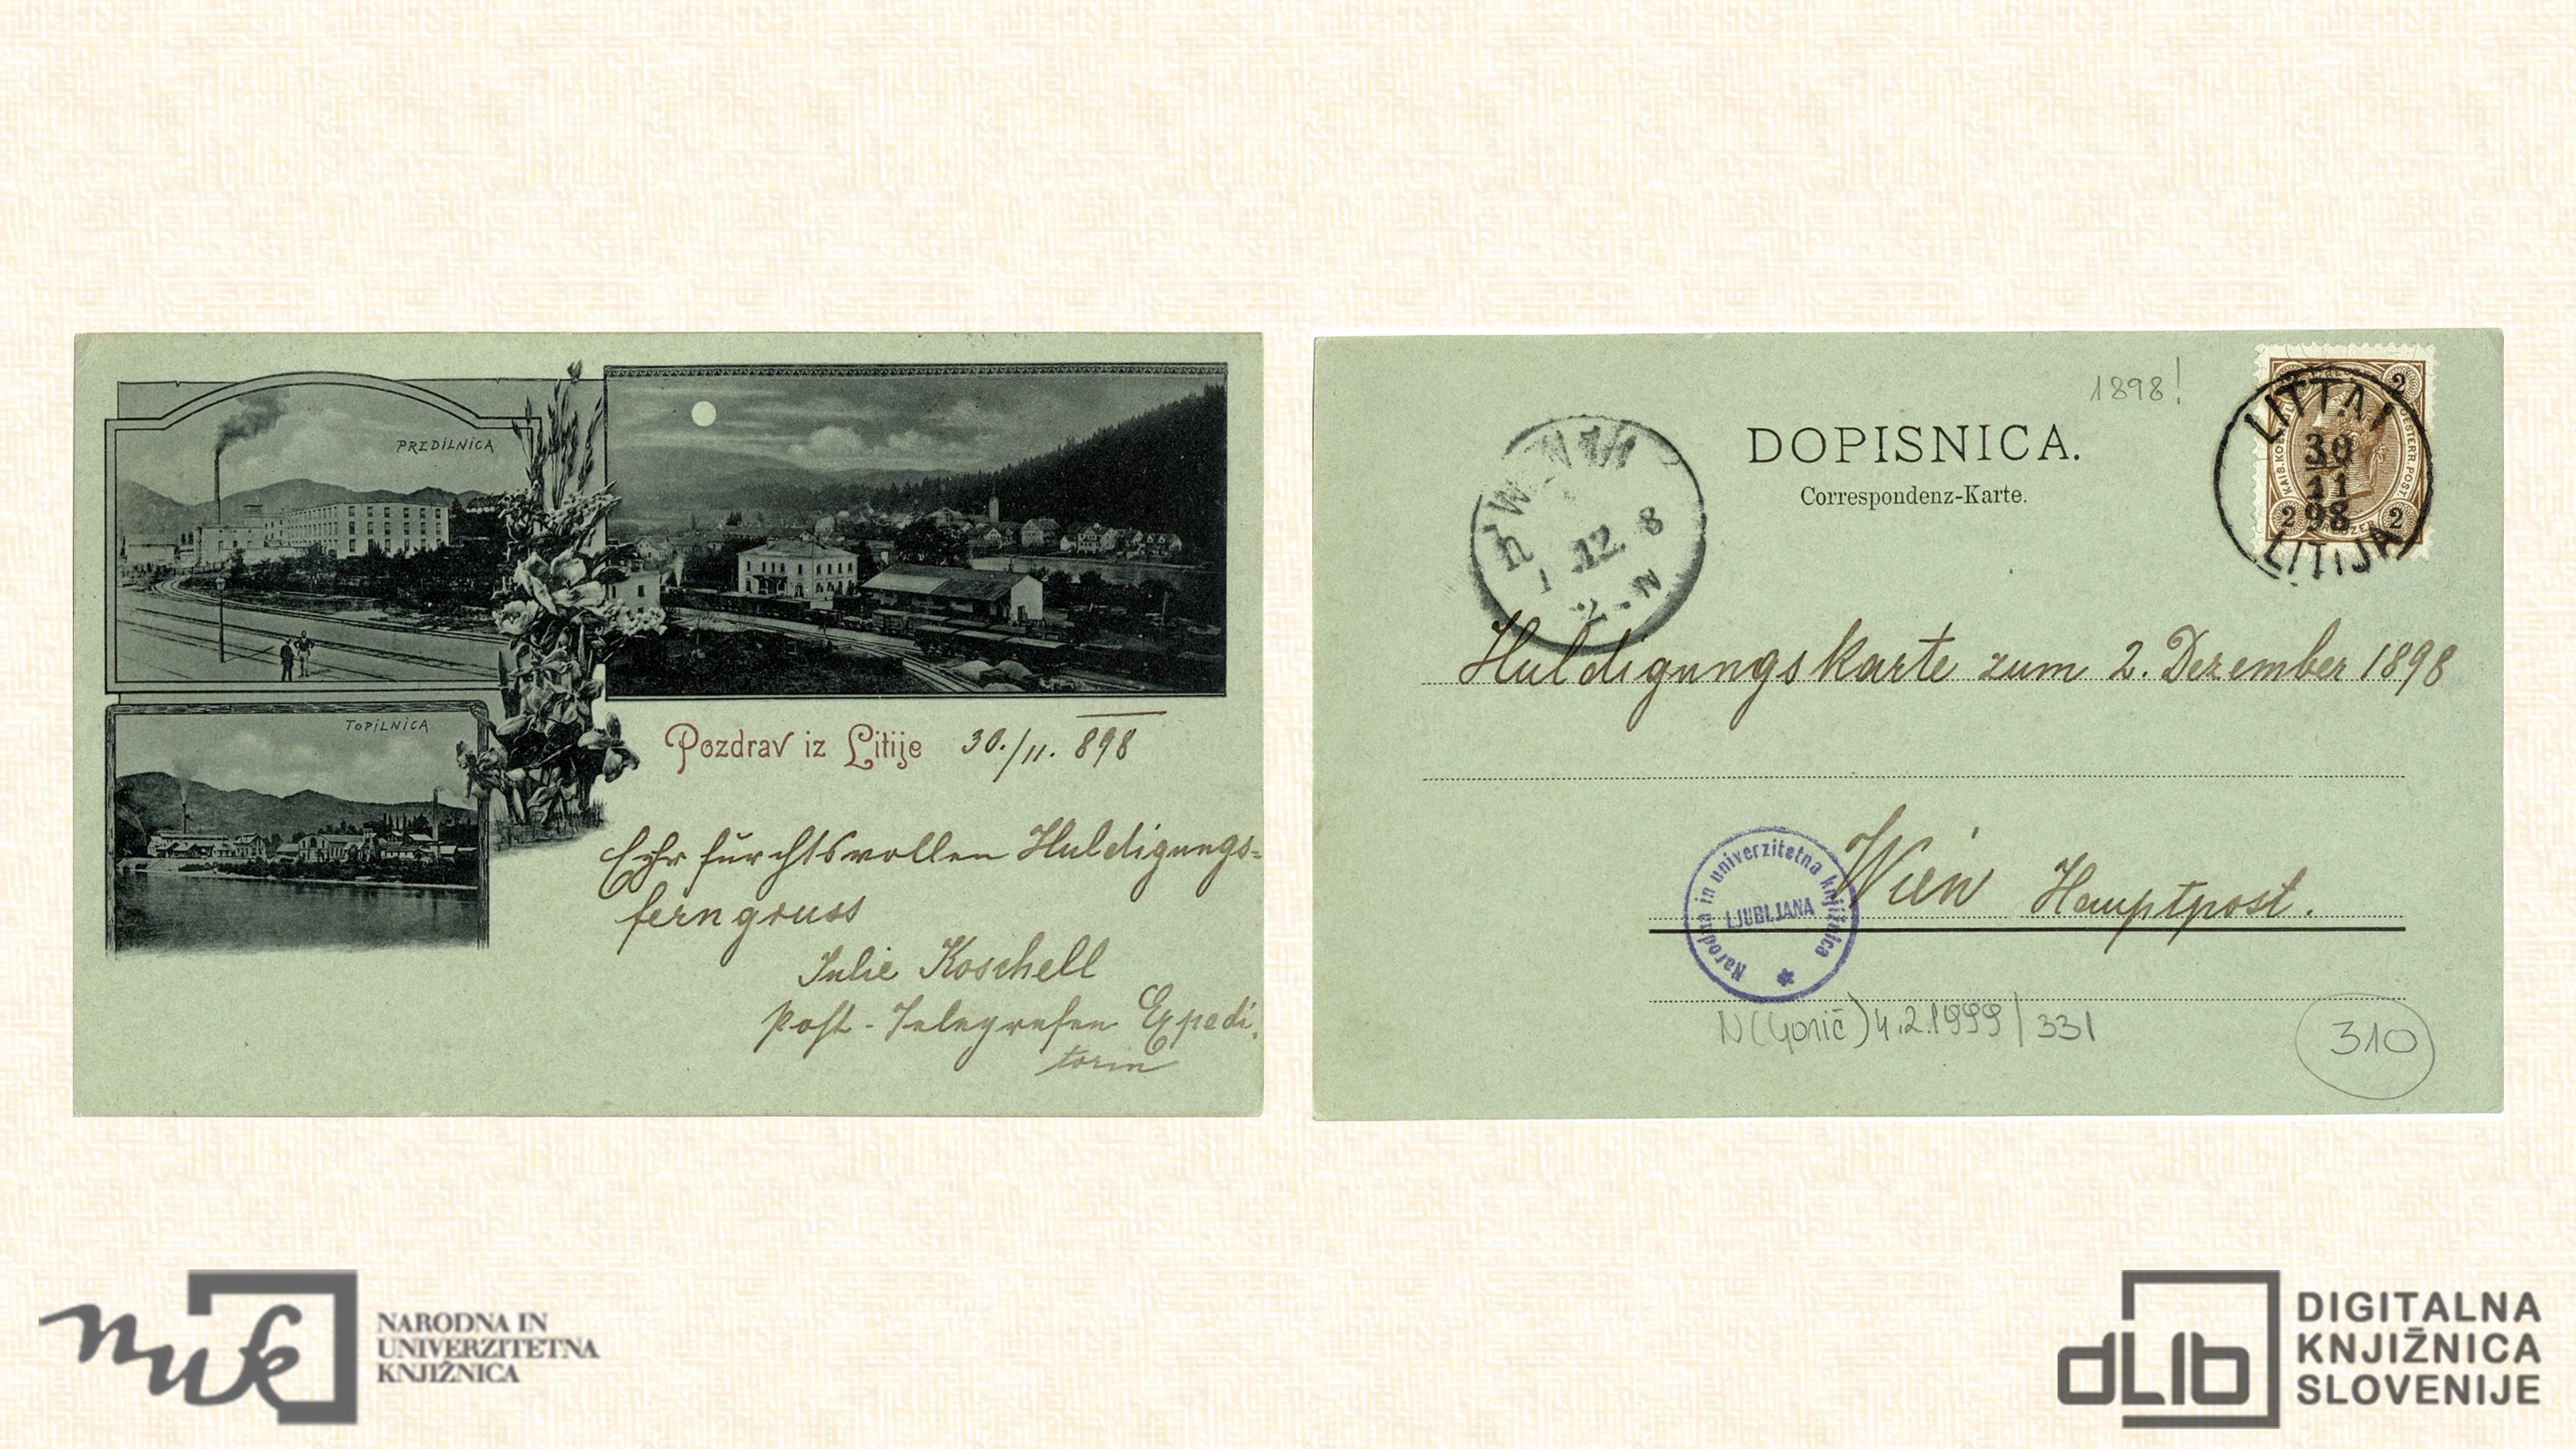 PREDILNICA
TOPILNICA
Pozdrav iz Litije 30./11. 898
Ehrfurchtsvollen Huldigungs-
ferngruss
Julie Koschell
Post-Telegrafen Expedi.
torin
1898!
DOPISNICA.
Correspondenz-Karte.
LITTAI
30
11
98
LITIJA
2 2 2
WIEN
1 .12. 8
2.-N
Huldigungskarte zum 2. Dezember 1898
Wien Hauptpost.
Narodna in univerzitetna knjižnica
LJUBLJANA
N(Gorič) 4.2.1999/331
310
nuk
NARODNA IN
UNIVERZITETNA
KNJIŽNICA
dLib
DIGITALNA
KNJIŽNICA
SLOVENIJE